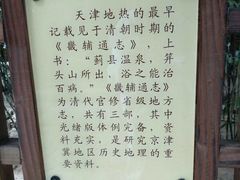 天津地热的最早
记载见于清朝时期的
《畿辅通志》，上
书：“蓟县温泉，笄
头山所出，浴之能治
百病。”《畿辅通志》
为清代官修省级地方
志，共有三部，其中
光绪版体例完备，资
料充实，是研究京津
冀地区历史地理的重
要资料。